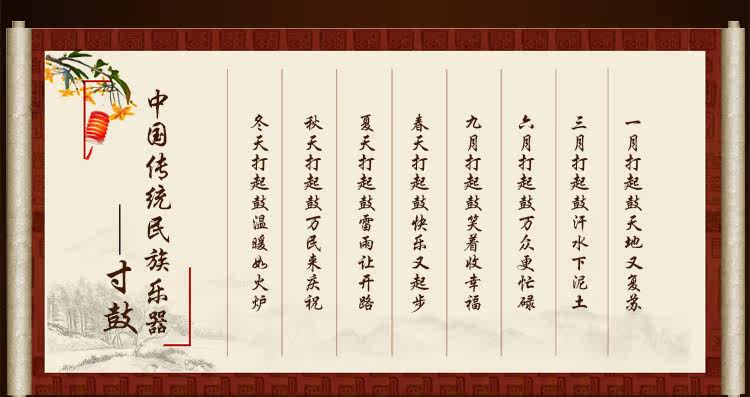 一月打起鼓天地又复苏
三月打起鼓汗水下泥土
六月打起鼓万众更忙碌
九月打起鼓笑着收幸福
春天打起鼓快乐又起步
夏天打起鼓雷雨让开路
秋天打起鼓万民来庆祝
冬天打起鼓温暖如火炉
中国传统民族乐器
——寸鼓